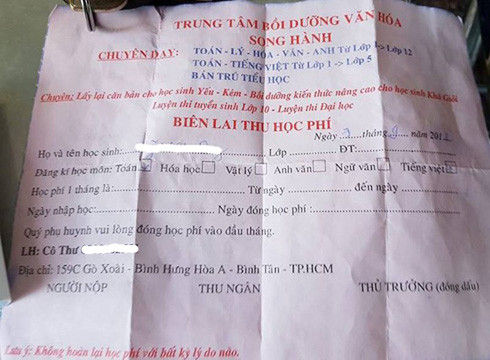 TRUNG TÂM BỒI DƯỠNG VĂN HÓA
SONG HÀNH
CHUYÊN DẠY: TOÁN - LÝ - HÓA - VĂN - ANH Từ Lớp 1 -> Lớp 12
TOÁN - TIẾNG VIỆT Từ Lớp 1 -> Lớp 5
BÁN TRÚ TIỂU HỌC
Chuyên: Lấy lại căn bản cho học sinh Yếu - Kém - Bồi dưỡng kiến thức nâng cao cho học sinh Khá Giỏi
Luyện thi tuyển sinh Lớp 10 - Luyện thi Đại học
BIÊN LAI THU HỌC PHÍ
Ngày tháng năm 201
Họ và tên học sinh: Lớp ĐT:
Đăng kí học môn: Toán Hóa học Vật lý Anh văn Ngữ văn Tiếng việt
Học phí 1 tháng là: Từ ngày đến ngày
Ngày nhập học: Ngày đóng học phí :
Quý phụ huynh vui lòng đóng học phí vào đầu tháng.
LH: Cô Thư
Địa chỉ: 159C Gò Xoài - Bình Hưng Hòa A - Bình Tân - TP.HCM
NGƯỜI NỘP THU NGÂN THỦ TRƯỞNG (đóng dấu)
Lưu ý: Không hoàn lại học phí với bất kỳ lý do nào.